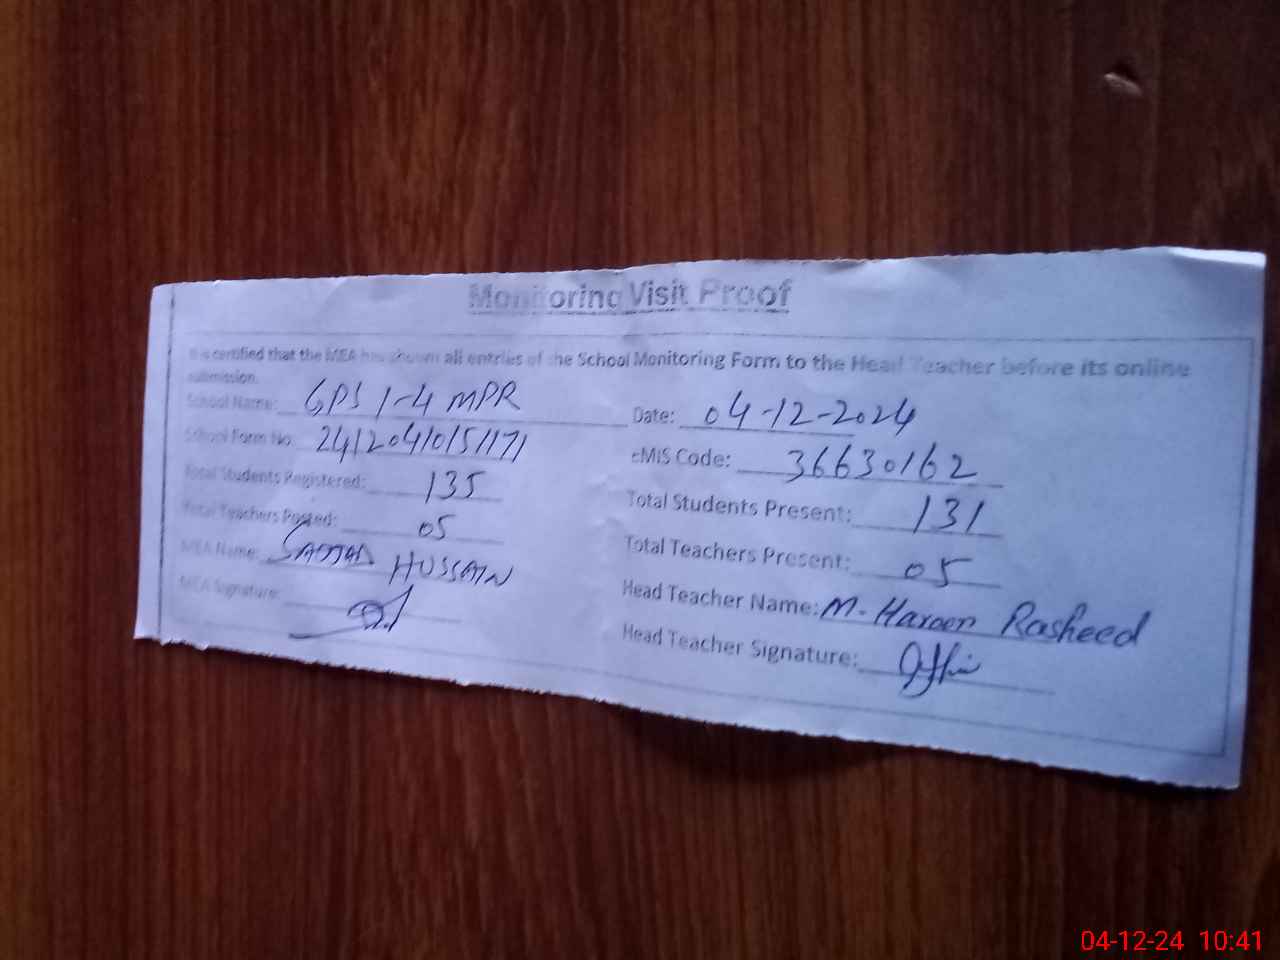 Monitoring Visit Proof
It is certified that the MEA has shown all entries of the School Monitoring Form to the Head Teacher before its online
submission.
School Name: GPS 1-4 MPR
Date: 04-12-2024
School Form No: 24120410151171
eMIS Code: 36630162
Total Students Registered: 135
Total Students Present: 131
Total Teachers Posted: 05
Total Teachers Present: 05
MEA Name: SAJJAD HUSSAIN
Head Teacher Name: M. Haroon Rasheed
MEA Signature:
Head Teacher Signature:
04-12-24 10:41